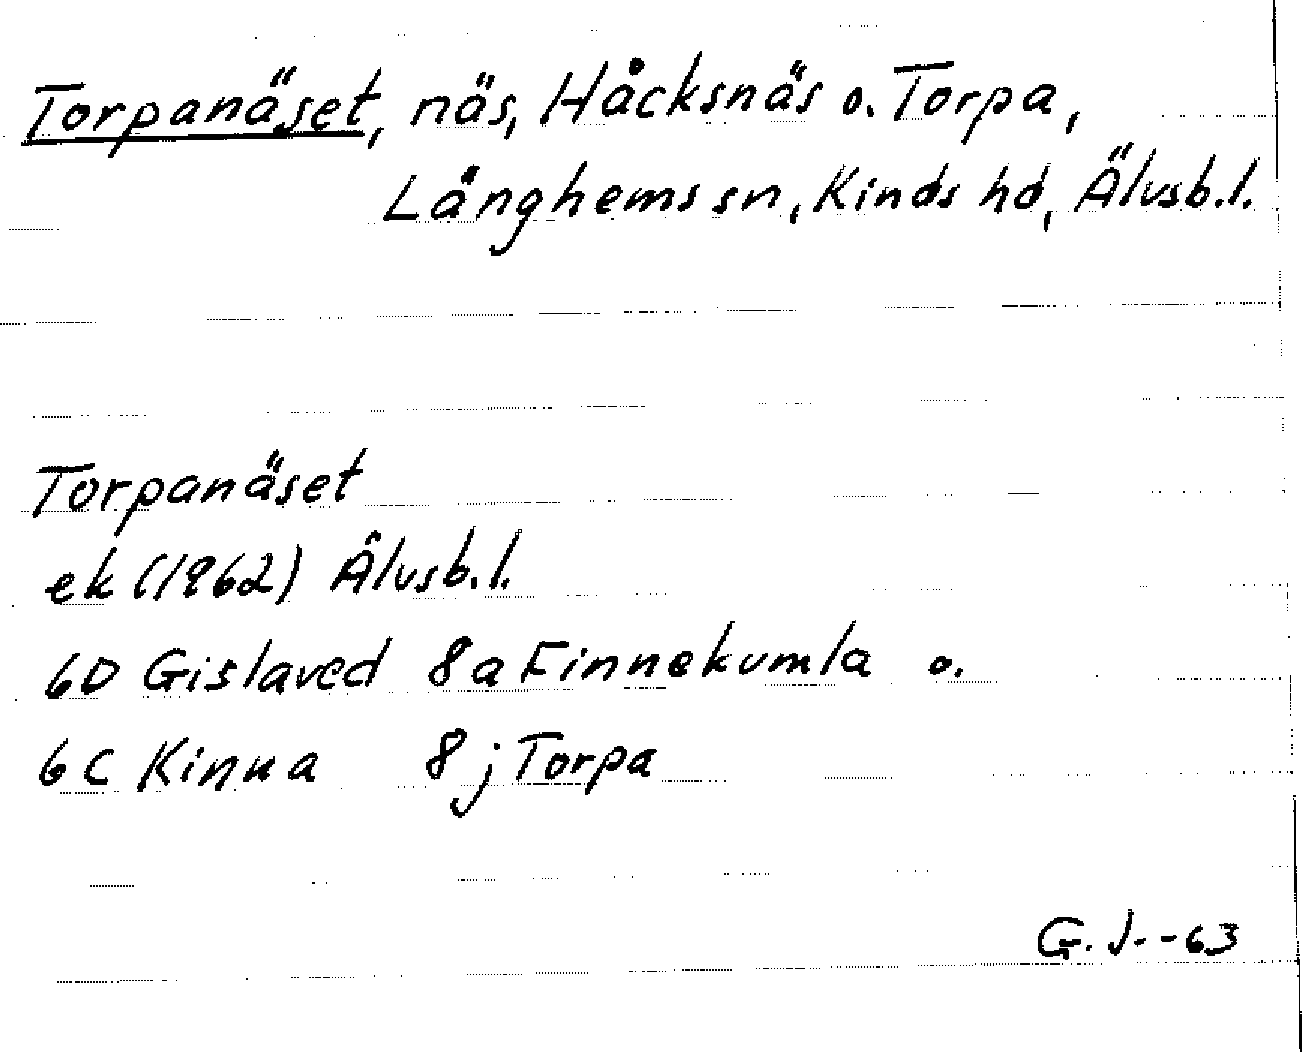 Torpanäset, näs, Håcksnäs o. Torpa,
Långhems sn, Kinds hd, Älvsb.l.
Torpanäset
ek (1962) Älvsb.l.
6D Gislaved 8a Finnekumla o.
6C Kinna 8j Torpa
G.J.-63